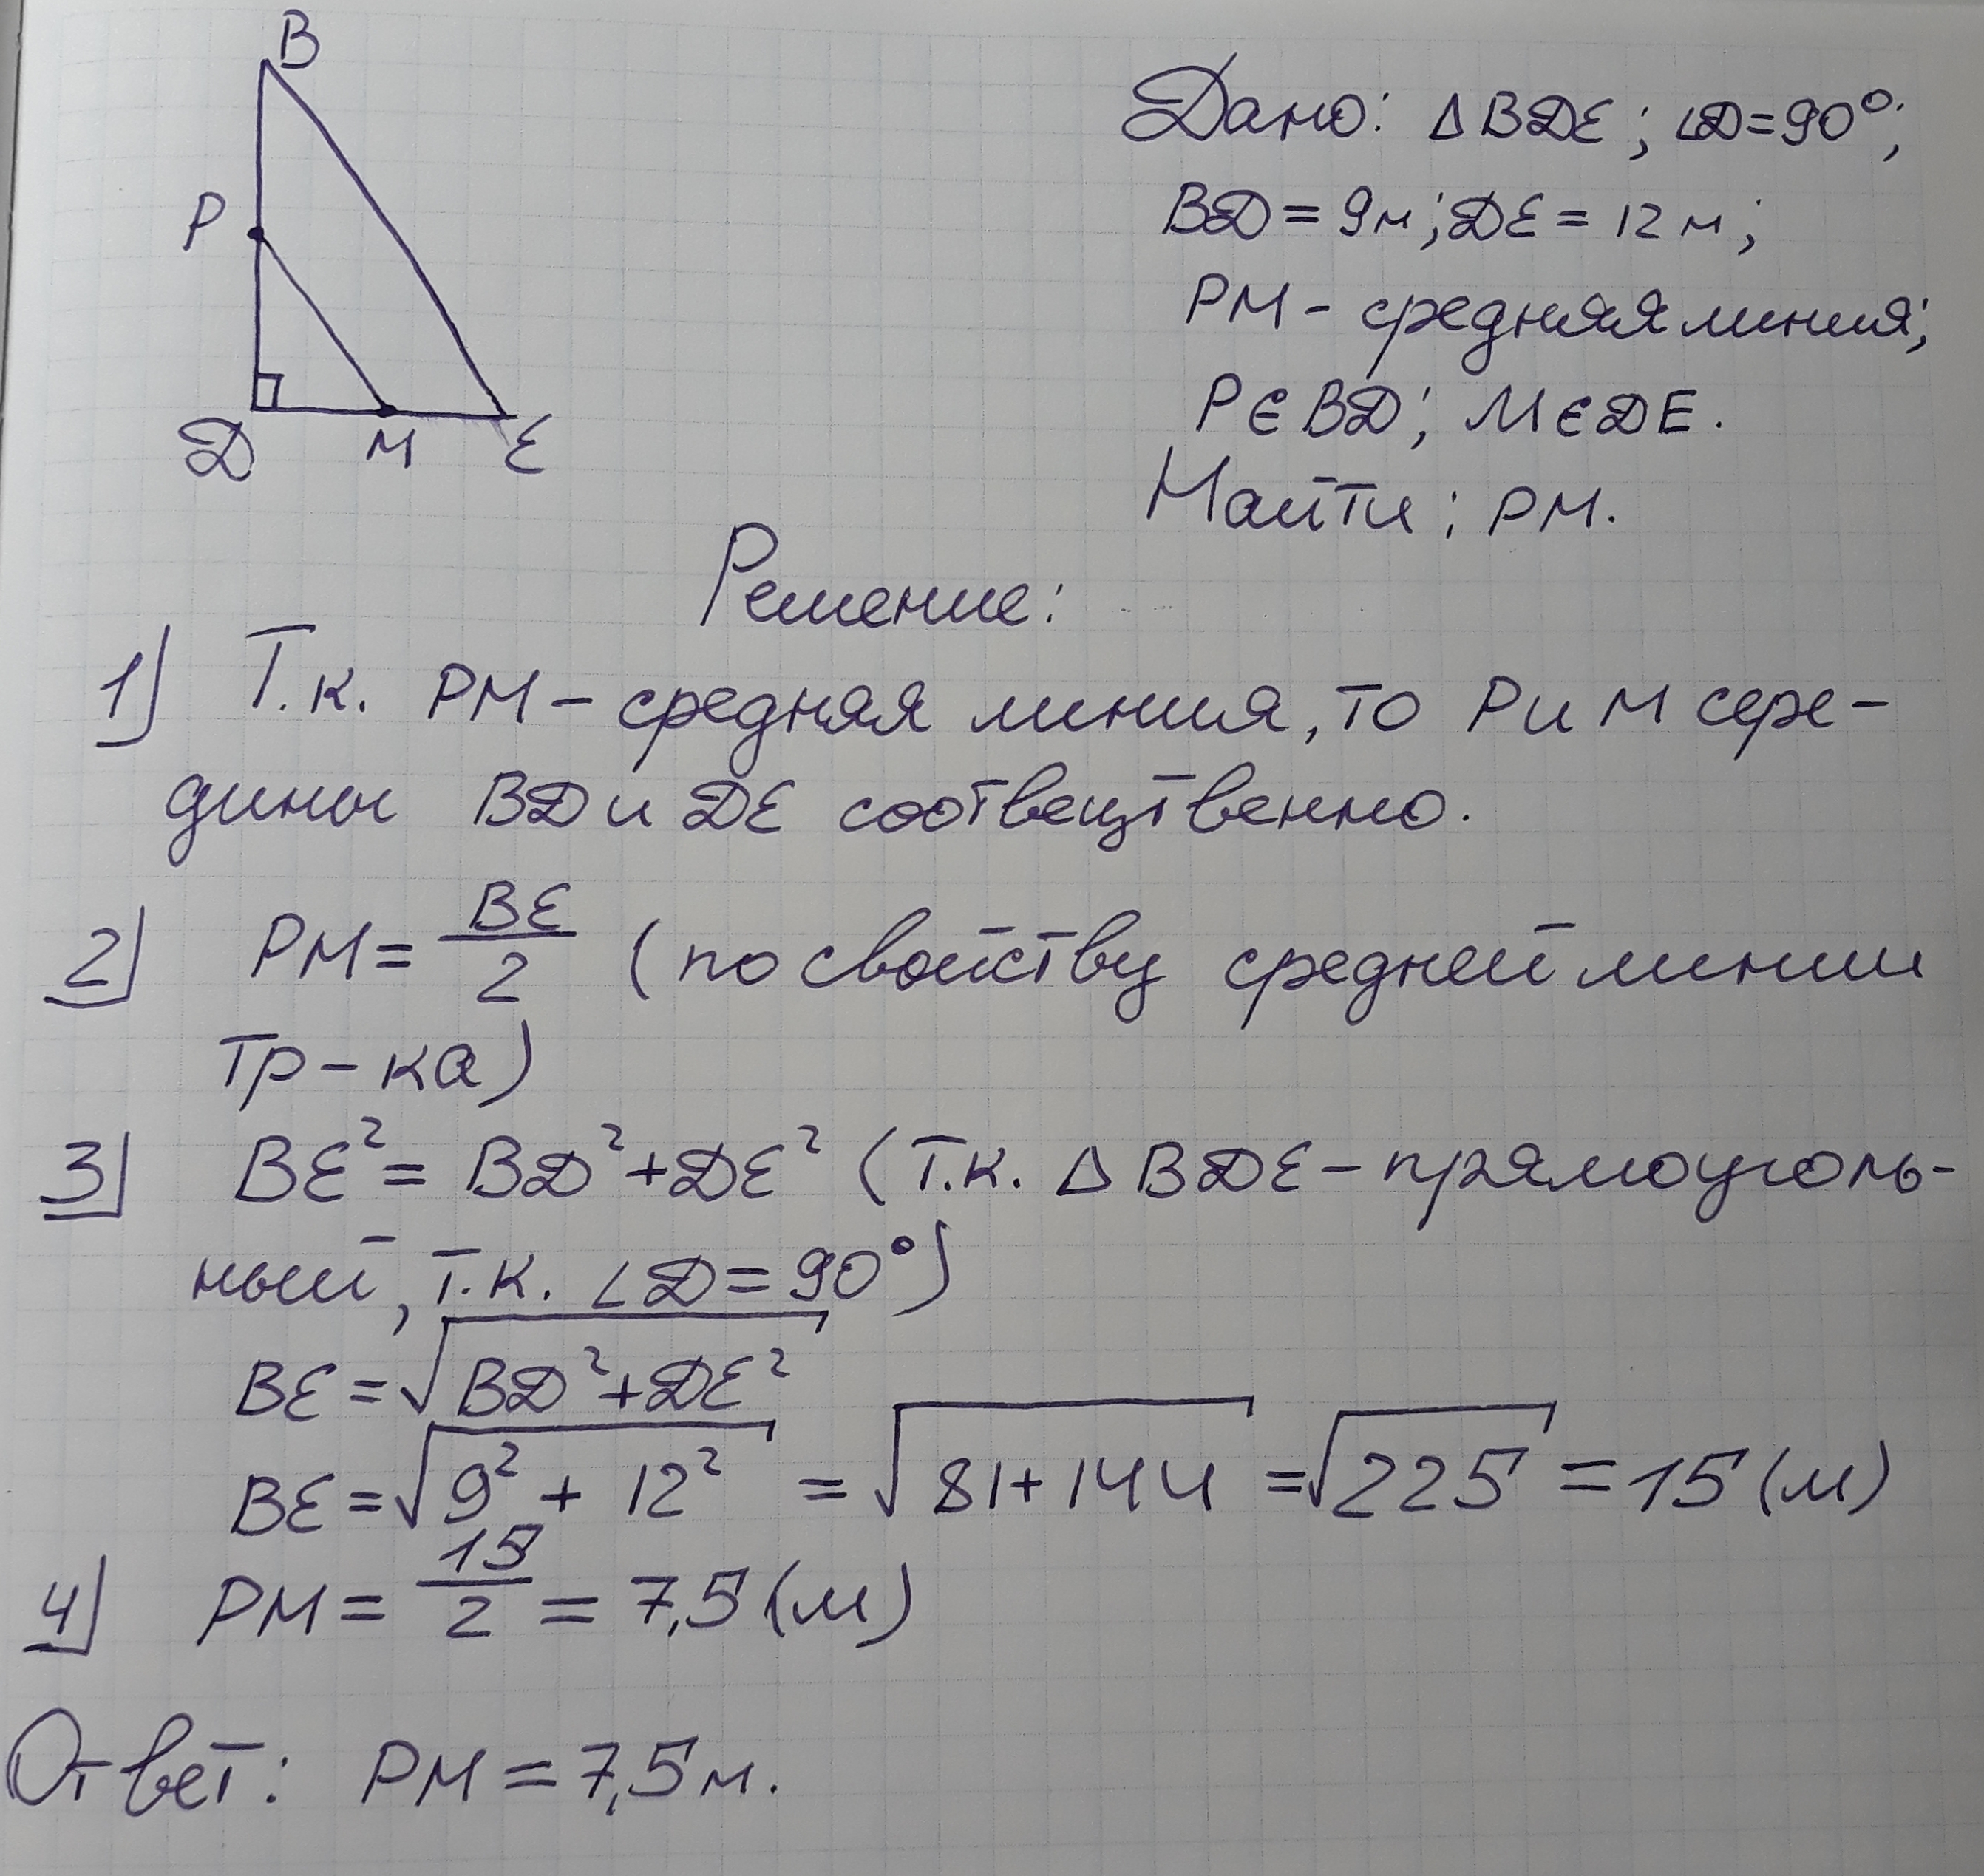 B
P
D M E
Дано: △BDE; ∠D=90°;
BD=9м; DE=12м;
PM - средняя линия;
P∈BD; M∈DE.
Найти: PM.
Решение:
1) Т.к. PM - средняя линия, то P и M сере-
дины BD и DE соотвещственно.
2) PM = BE/2 (по свойству средней линии
тр-ка)
3) BE² = BD²+DE² (т.к. △BDE - прямоуголь-
ный, т.к. ∠D=90°)
BE=√(BD²+DE²)
BE=√(9² + 12²) = √(81+144) = √225 = 15 (м)
4) PM = 15/2 = 7,5 (м)
Ответ: PM = 7,5 м.